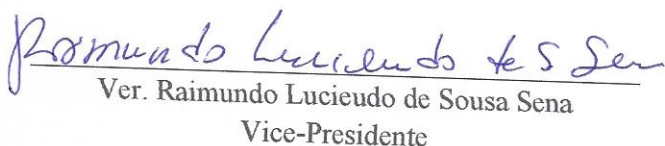 Raimundo Lucieudo de S Sena
Ver. Raimundo Lucieudo de Sousa Sena
Vice-Presidente